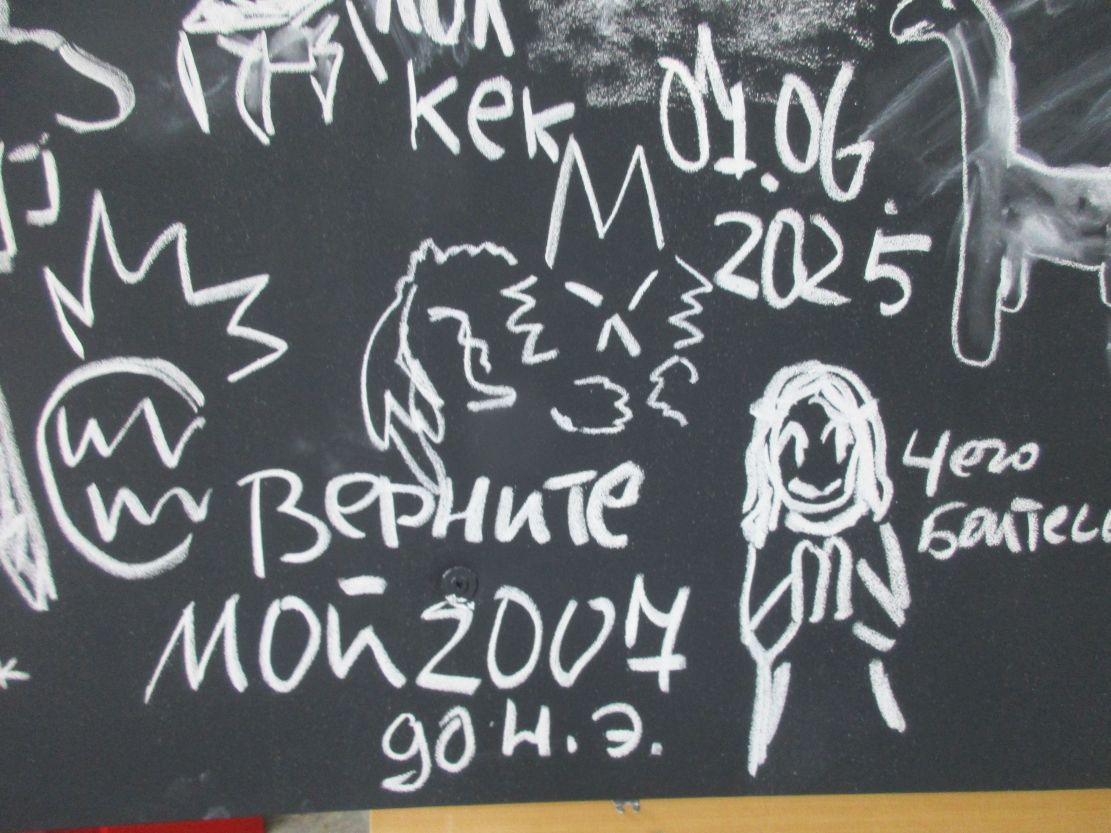 лол
кек
01.06.
2025
Верните
мой 2007
до н.э.
Чего
боитесь